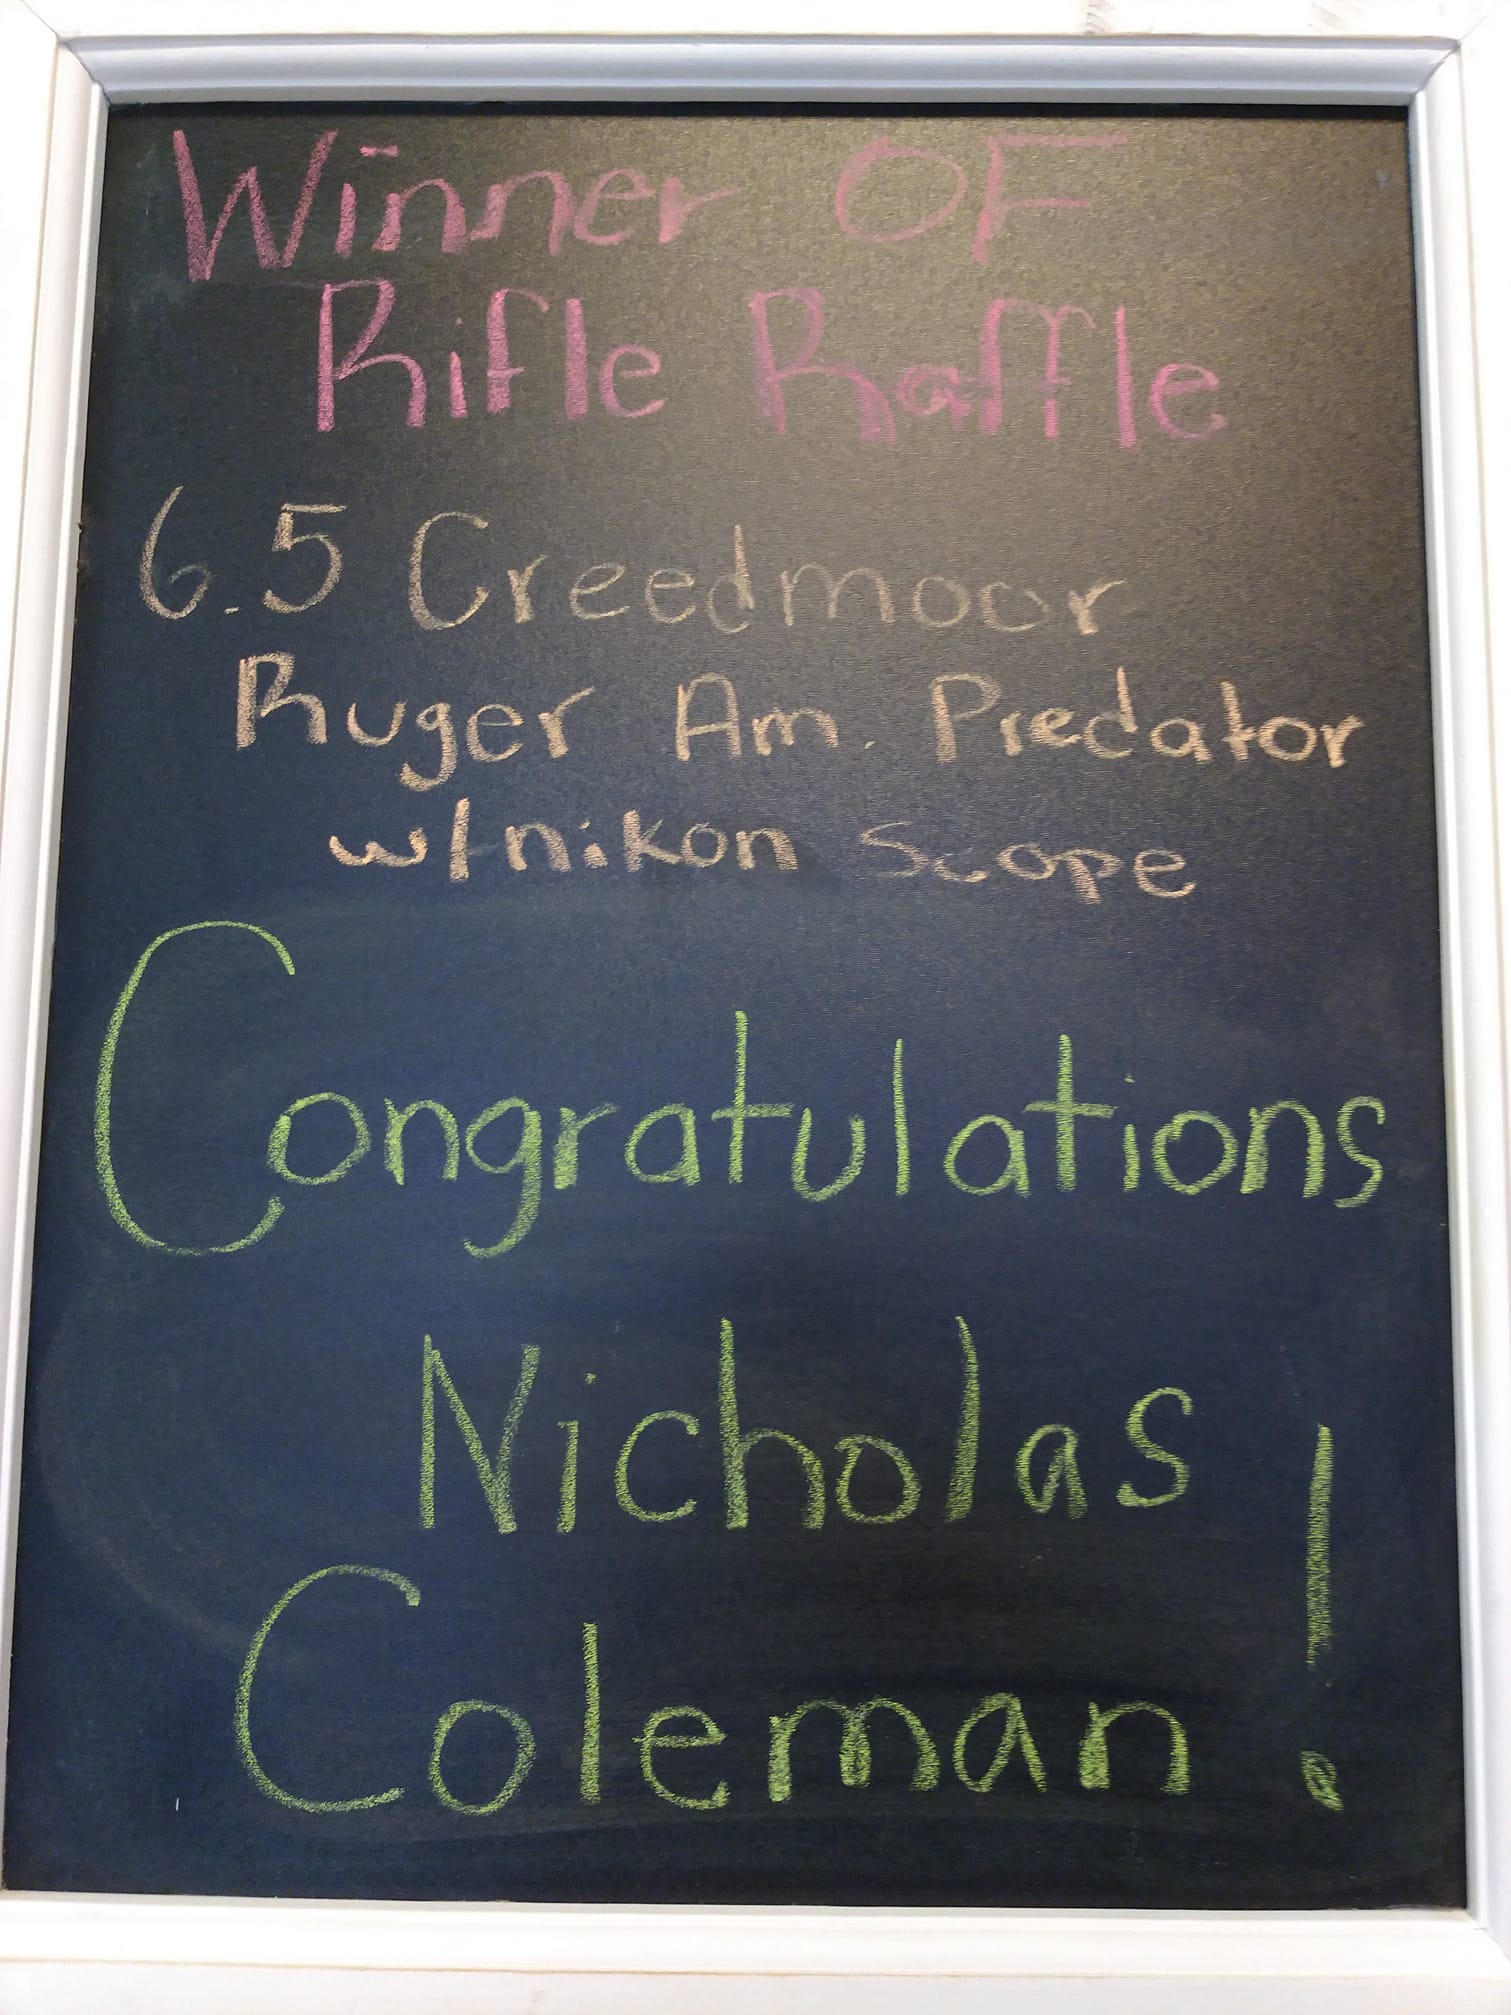 Winner OF
Rifle Raffle
6.5 Creedmoor
Ruger Am. Predator
w/nikon Scope
Congratulations
Nicholas
Coleman!